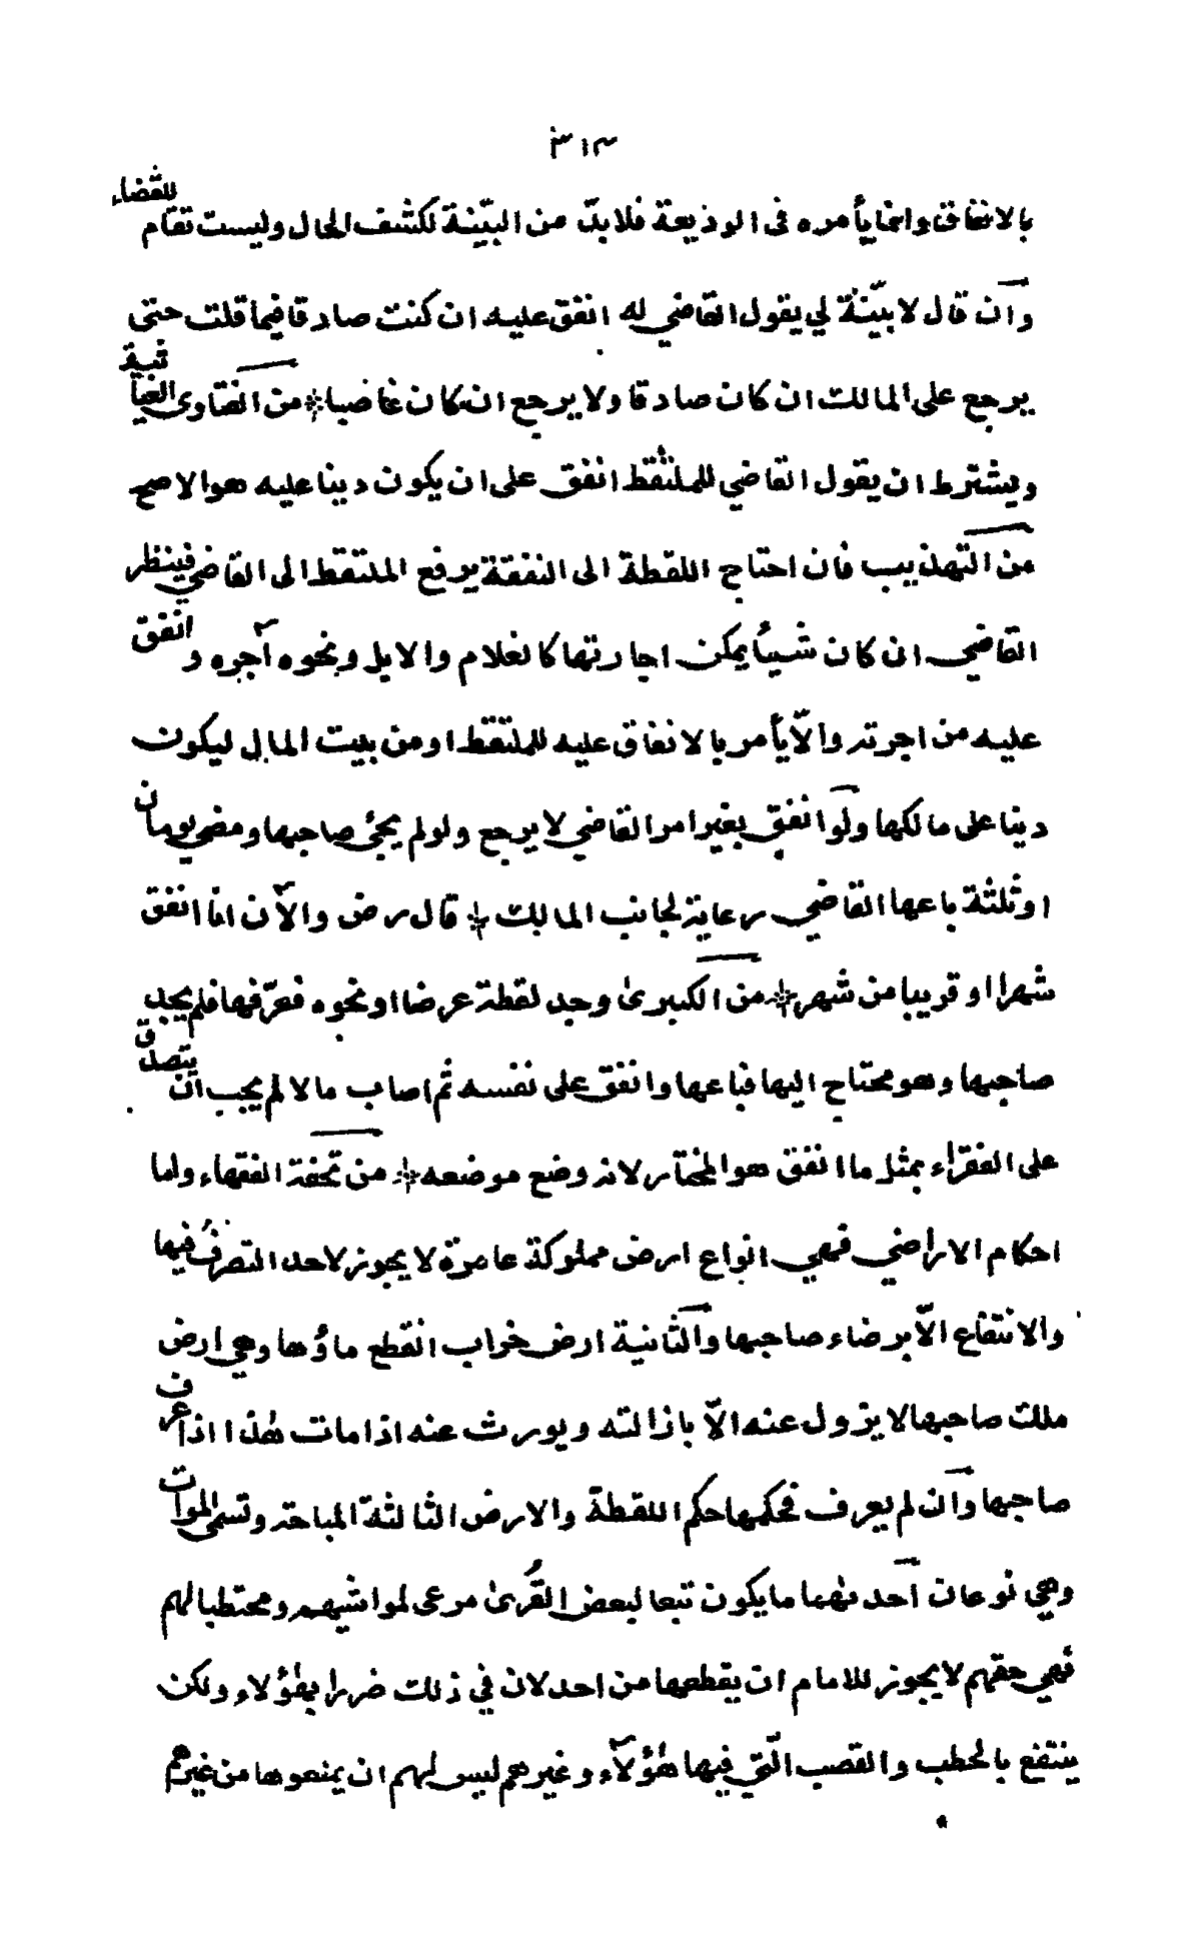 ٣١٣
بالانفاق وانما يأمره فى الوذيعة فلا بدّ من البيّنة لكشف الحال وليست تقام للقضاء
وان قال لا بيّنة لي يقول القاضي له انفق عليه ان كنت صادقا فيما قلت حتى
يرجع على المالك ان كان صادقا ولا يرجع ان كان غاصبا من الفتاوى الغياثية
ويشترط ان يقول القاضي للملتقط انفق على ان يكون دينا عليه هو الاصح
من التهذيب فان احتاج اللقطة الى النفقة يرفع الملتقط الى القاضي فينظر
القاضي ان كان شيئا يمكن اجارتها كالغلام والابل ونحوه آجره وانفق
عليه من اجرته والّا يأمر بالانفاق عليه للملتقط او من بيت المال ليكون
دينا على مالكها ولو انفق بغير امر القاضي لا يرجع ولو لم يجئ صاحبها ومضى يومان
او ثلثة باعها القاضي رعاية لجانب المالك قال رض والآن انا انفق
شهرا او قريبا من شهر من الكبرىٰ وجد لقطة عرضا او نحوه فعرّفها فلم يجد
صاحبها وهو محتاج اليها فباعها وانفق على نفسه ثم اصاب مالا لم يجب ان يتصدق
على الفقراء بمثل ما انفق هو المختار لانه وضع موضعه من تحفة الفقهاء واما
احكام الاراضي فهي انواع ارض مملوكة عامرة لا يجوز لاحد التصرف فيها
والانتفاع الّا برضاء صاحبها والثانية ارض خراب انقطع ماؤها وهي ارض
ملك صاحبها لا يزول عنه الّا بازالته ويورث عنه اذا مات هٰذا اذا عرف
صاحبها وان لم يعرف فحكمها حكم اللقطة والارض الثالثة المباحة وتسمى الموات
وهي نوعان احدهما ما يكون تبعا لبعض القُرىٰ مرعى لمواشيهم ومحتطبا لهم
فهي حقهم لا يجوز للامام ان يقطعها من احد لان في ذلك ضررا بهٰؤلاء ولكن
ينتفع بالحطب والقصب الّتي فيها هٰؤلآء وغيرهم ليس لهم ان يمنعوها من غيرهم